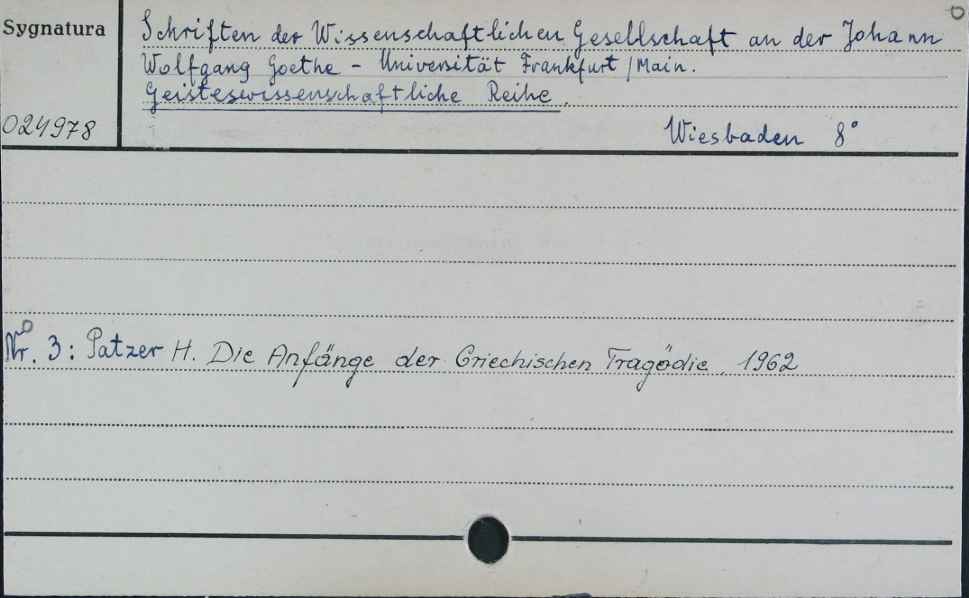 Sygnatura
Schriften der Wissenschaftlichen Gesellschaft an der Johann
Wolfgang Goethe - Universität Frankfurt/Main.
Geisteswissenschaftliche Reihe.
024978
Wiesbaden 8°
Nr. 3: Patzer H. Die Anfänge der Griechischen Tragödie. 1962